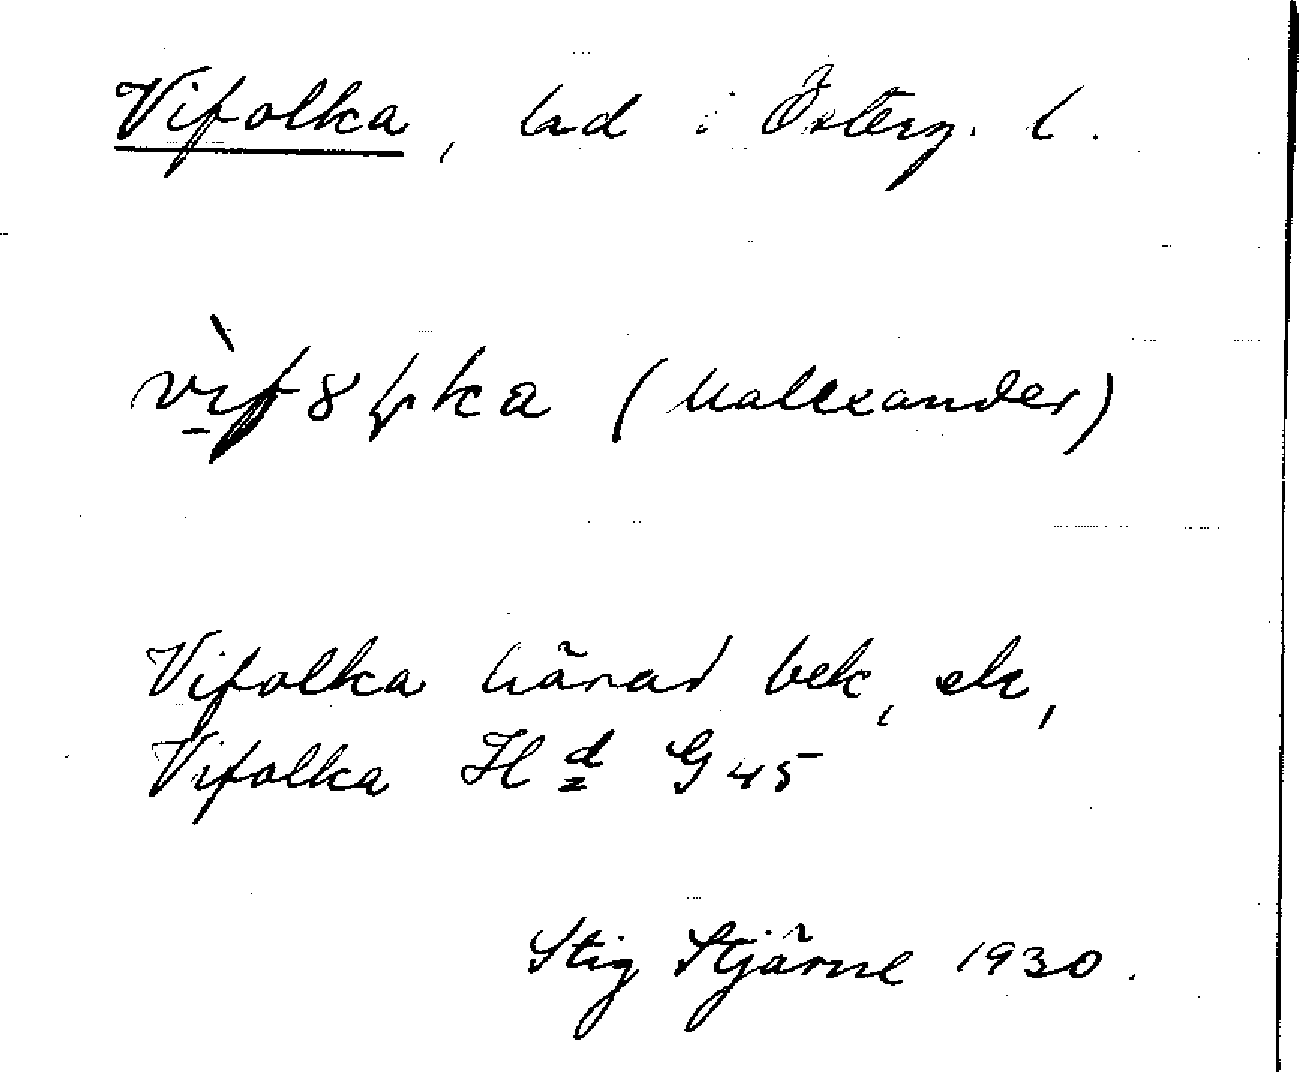 Vifolka, hd i Österg. l.
(Malexander)
Vifolka härad bek, ek,
Vifolka Hd G 45
Stig Stjärne 1930.